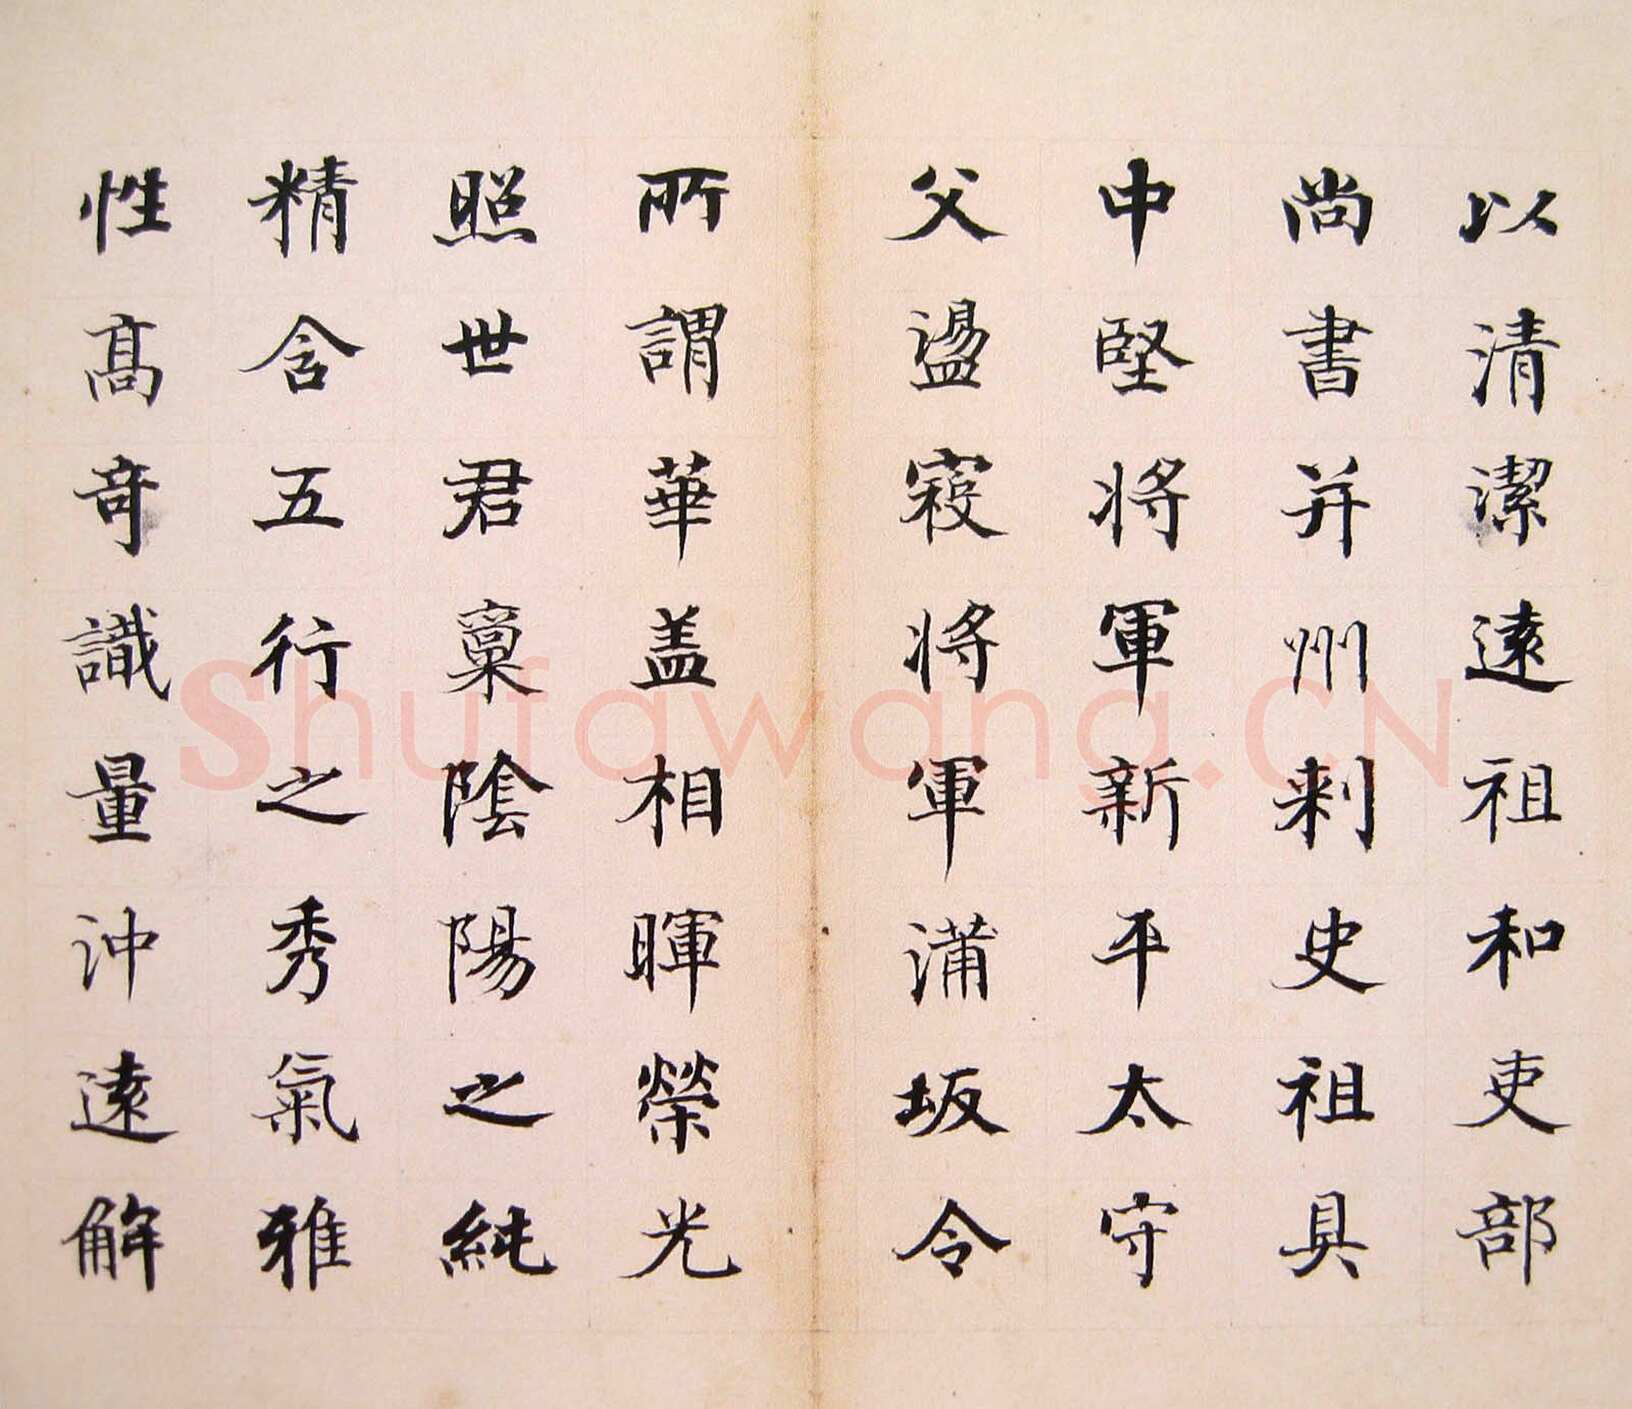 以清潔遠祖和吏部
尚書并州刺史祖具
中堅將軍新平太守
父盪寇將軍蒲坂令
所謂華盖相暉榮光
照世君稟陰陽之純
精含五行之秀氣雅
性高奇識量沖遠解
Shufawang.CN